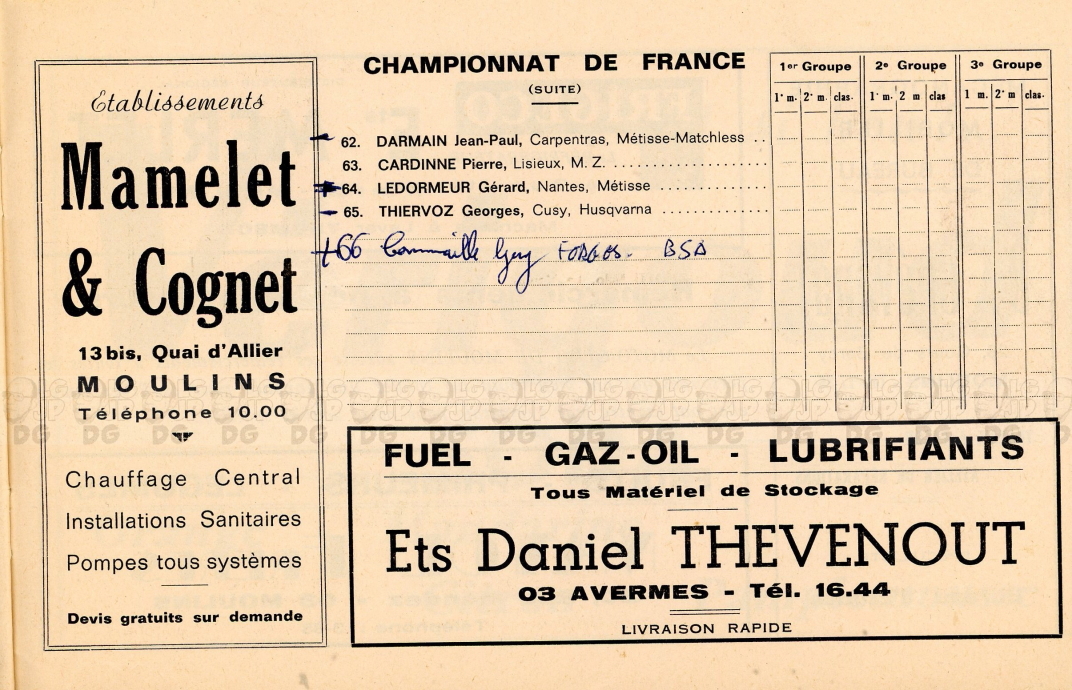 Etablissements
Mamelet
& Cognet
13 bis, Quai d'Allier
MOULINS
Téléphone 10.00
Chauffage Central
Installations Sanitaires
Pompes tous systèmes
Devis gratuits sur demande
CHAMPIONNAT DE FRANCE
(SUITE)
1er Groupe 2e Groupe 3e Groupe
1e m. 2e m. clas. 1e m. 2 m clas 1 m. 2e m clas.
62. DARMAIN Jean-Paul, Carpentras, Métisse-Matchless ..
63. CARDINNE Pierre, Lisieux, M. Z. ......................
64. LEDORMEUR Gérard, Nantes, Métisse ...............
65. THIERVOZ Georges, Cusy, Husqvarna ...............
+66 Commaille Guy FORGES. BSA
FUEL - GAZ-OIL - LUBRIFIANTS
Tous Matériel de Stockage
Ets Daniel THEVENOUT
03 AVERMES - Tél. 16.44
LIVRAISON RAPIDE